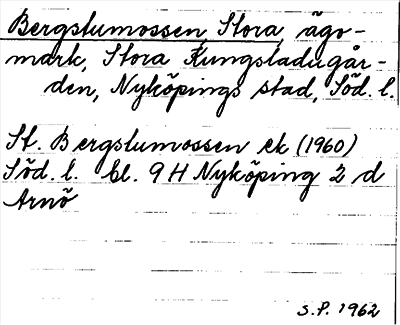 Bergslumossen, Stora, ägo-
mark, Stora Kungsladugår-
den, Nyköpings stad, Söd. l.
St. Bergslumossen ek (1960)
Söd. l. bl. 9 H Nyköping 2 d
Arnö
S.P. 1962